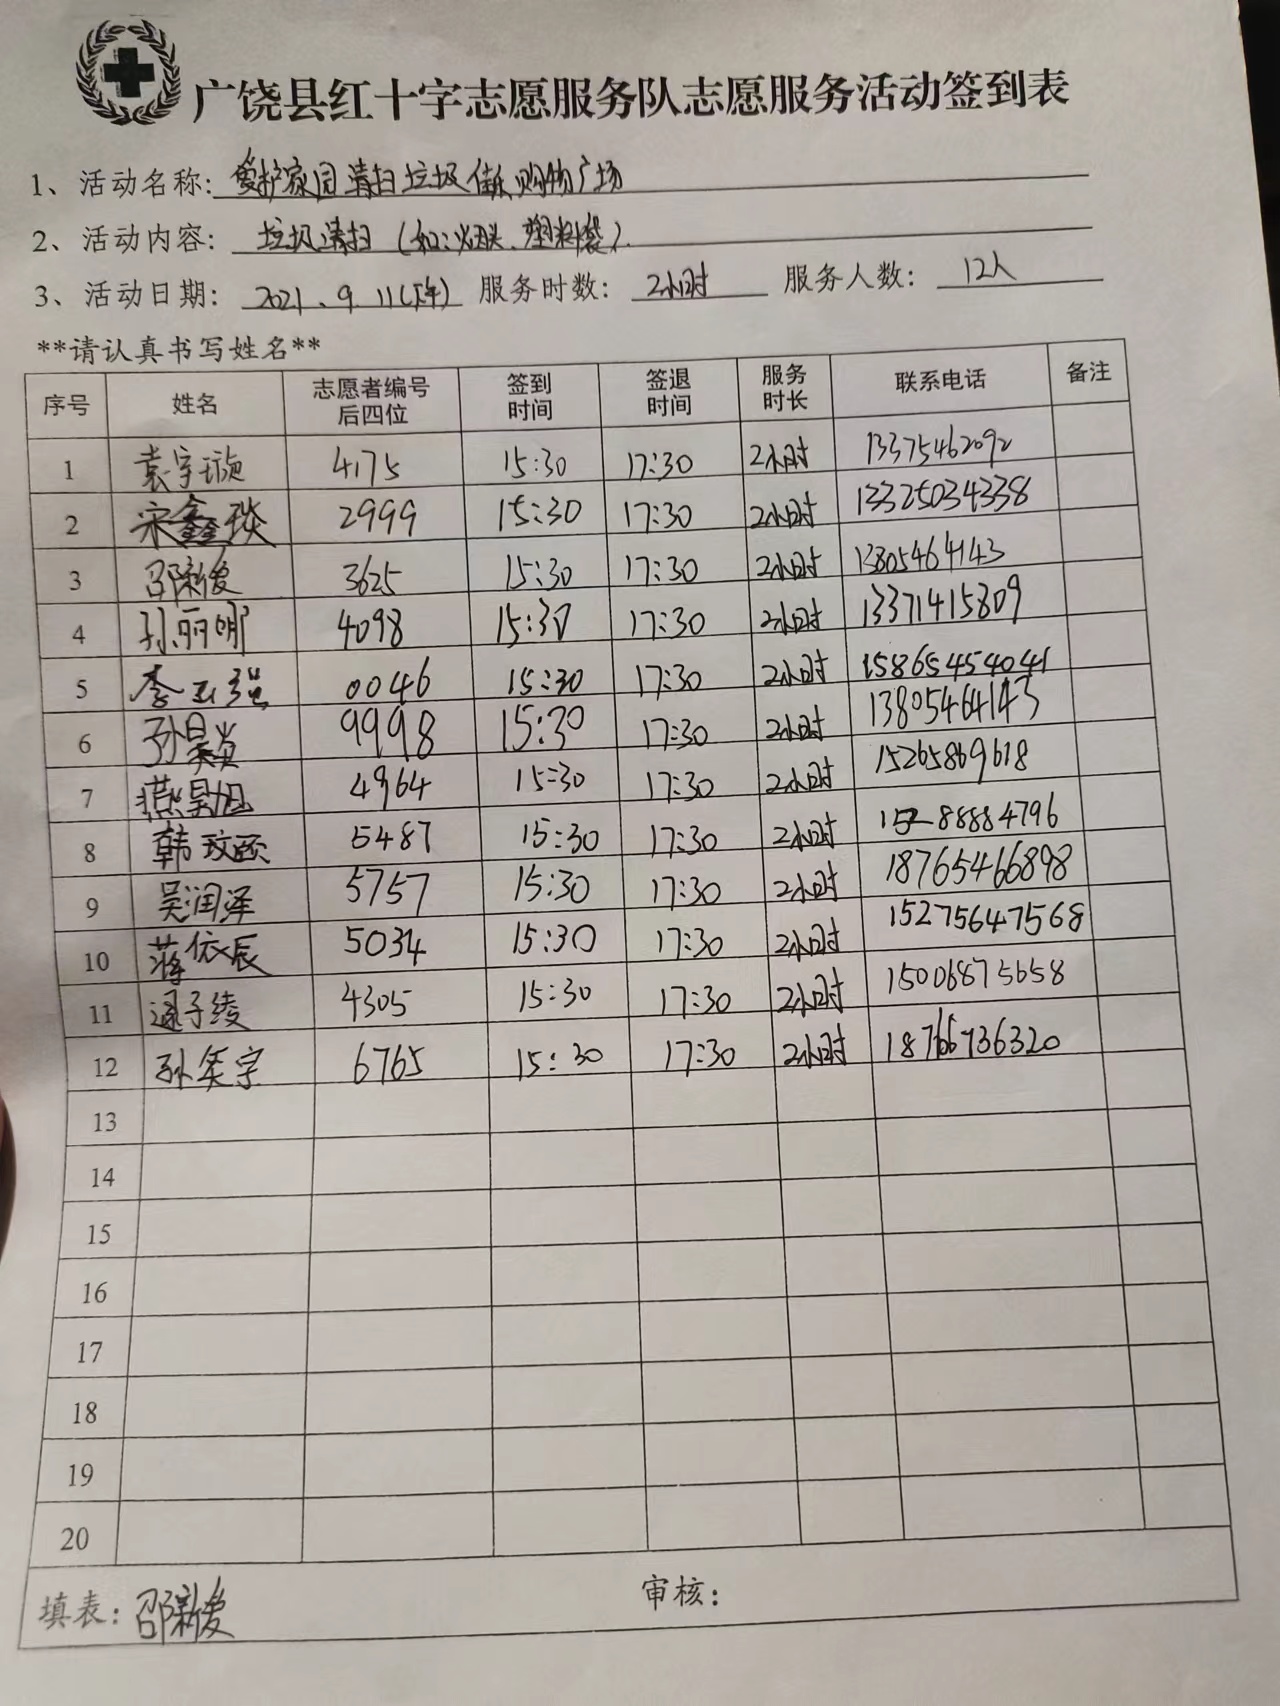 广饶县红十字志愿服务队志愿服务活动签到表
1、活动名称: 爱护家园清扫垃圾佳乐购物广场
2、活动内容: 垃圾清扫(如:烟头、塑料袋)
3、活动日期: 2021.9.11(下午) 服务时数: 2小时 服务人数: 12人
**请认真书写姓名**
序号 姓名 志愿者编号后四位 签到时间 签退时间 服务时长 联系电话 备注
1 袁宇璇 4175 15:30 17:30 2小时 13375462092
2 宋鑫琰 2999 15:30 17:30 2小时 13325034338
3 邵新爱 3625 15:30 17:30 2小时 13805464143
4 孙丽娜 4098 15:30 17:30 2小时 13371415809
5 李玉强 0046 15:30 17:30 2小时 15865454041
6 孙昊炎 9998 15:30 17:30 2小时 13805464143
7 燕昊旭 4964 15:30 17:30 2小时 15265869618
8 韩玟函 5487 15:30 17:30 2小时 88884796
9 吴润泽 5757 15:30 17:30 2小时 18765466898
10 蒋依辰 5034 15:30 17:30 2小时 15275647568
11 逯子绫 4305 15:30 17:30 2小时 15006875658
12 孙奕宇 6765 15:30 17:30 2小时 18766736320
13
14
15
16
17
18
19
20
填表: 邵新爱 审核: